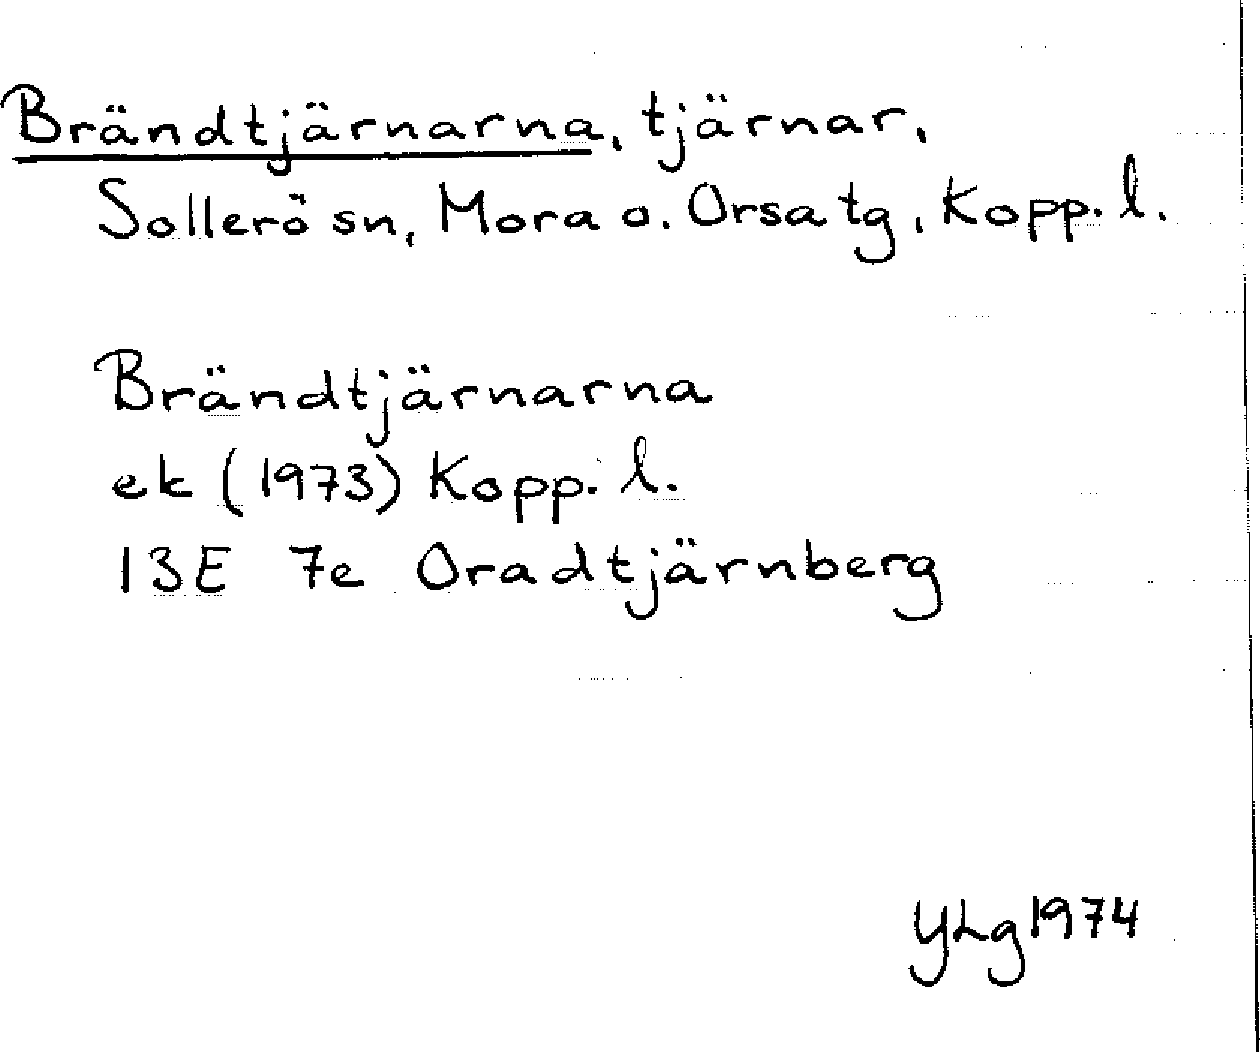 Brändtjärnarna, tjärnar,
Sollerö sn, Mora o. Orsa tg, Kopp. l.
Brändtjärnarna
ek (1973) Kopp. l.
13E 7e Oradtjärnberg
YLg 1974